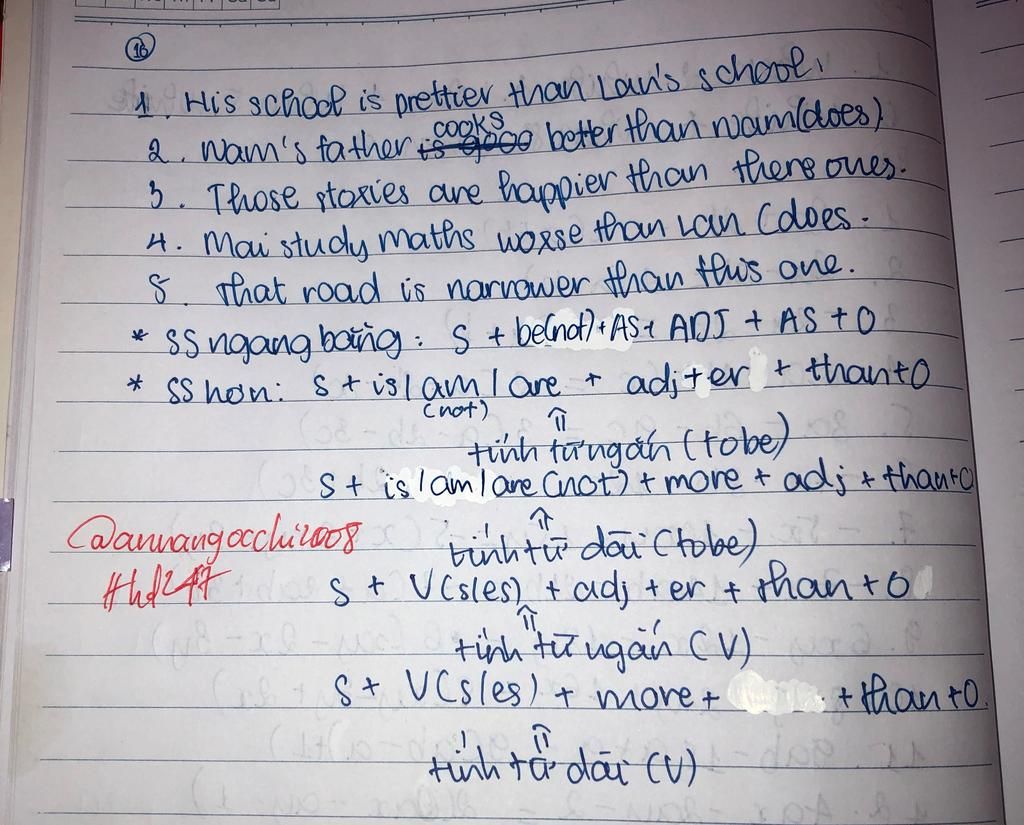 16
1. His school is prettier than Lan's school.
2. Nam's father cooks better than Nam (does)
3. Those stories are happier than there ones.
4. Mai study maths worse than Lan (does.
5. That road is narrower than this one.
* SS ngang bằng: S + be(not) + AS + ADJ + AS + O
* SS hơn: S + is / am / are + adj + er + than + O
(not) ⇑
tính từ ngắn (tobe)
S + is / am / are (not) + more + adj + than + O
⇑
@annangocchi2008 tính từ dài (tobe)
#hd247 S + V(s/es) + adj + er + than + O
⇑
tính từ ngắn (V)
S + V(s/es) + more + + than + O
⇑
tính từ dài (V)